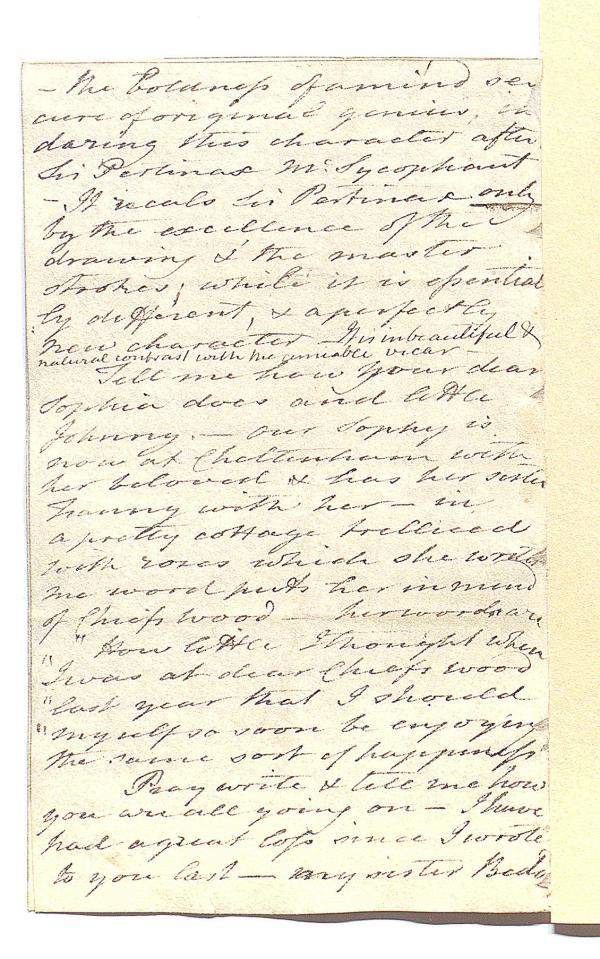 – the boldness of a mind se-
cure of original genius, in
daring this character after
Sir Pertinax Mc. Sycophant
– It recals Sir Pertinax only
by the excellence of the
drawing & the master
strokes; while it is essential
ly different, & a perfectly
new character – in beautiful &
natural contrast with the amiable vicar –
Tell me how your dear
Sophia does and little
Johnny. – our Sophy is
now at Cheltenham with
her beloved & has her sister
Fanny with her – in
a pretty cottage trelliced
with roses which she writes
me word puts her in mind
of Chiefs wood – her words are
" How little I thought when
" I was at dear Chiefs wood
" last year that I should
" myself so soon be enjoying
the same sort of happiness
Pray write & tell me how
you are all going on – I have
had a great loss since I wrote
to you last – my sister